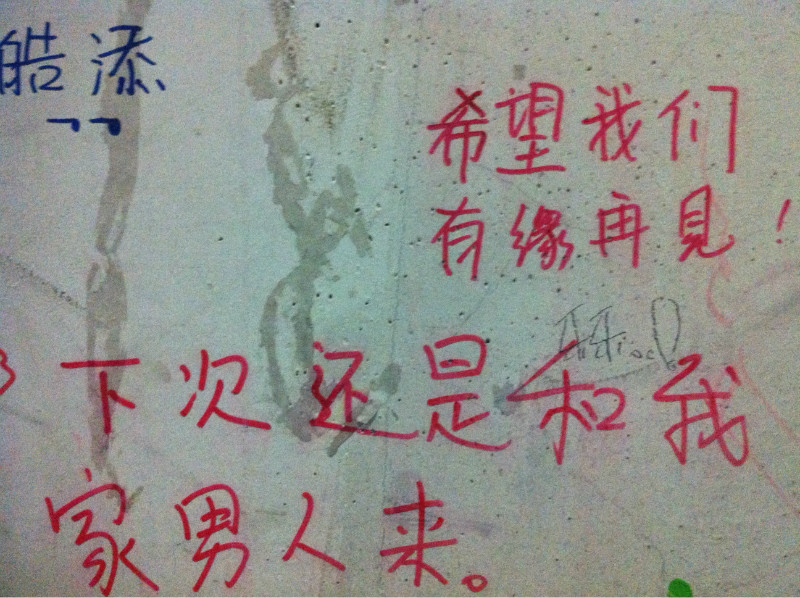 皓添
希望我们
有缘再見！
下次还是和我
家男人来。